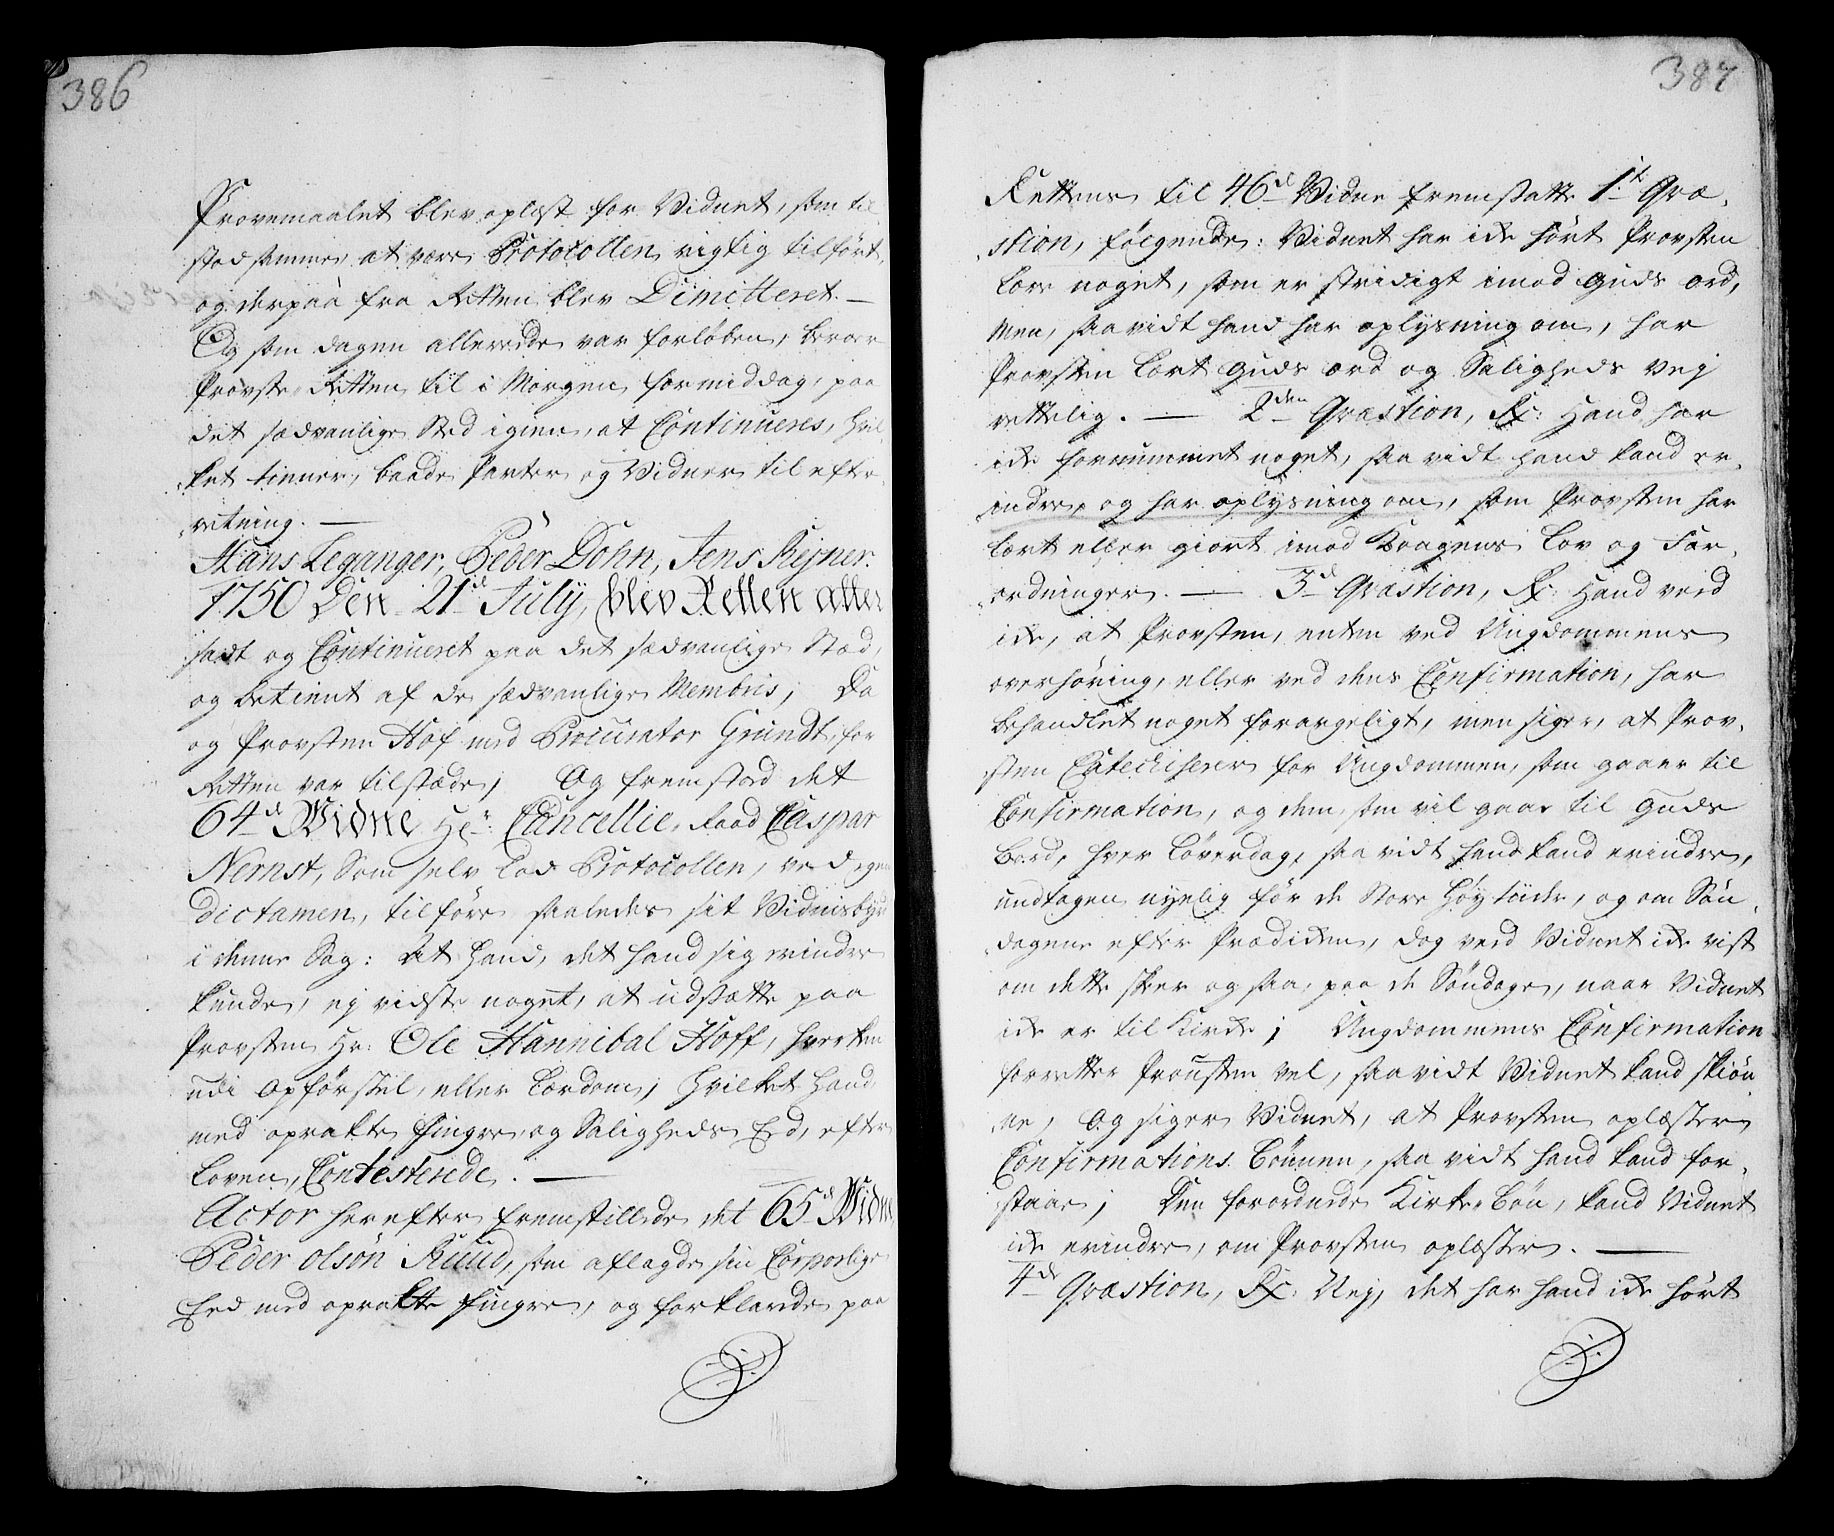 386
Provemaalet blev oplæst for Vidnet, som til
stod samme, at være Protocollen rigtig tilført,
og derpaa fra Retten blev Dimitteret. —
Og som dagen allereede var forløben, beroer
Prøvste Retten til i Morgen formiddag, paa
det sædvanlige Sted igien, at Continueres, hvil
ket tiener, baade Parter og Vidner til efter-
retning. —
Hans Leganger, Peder Dohn, Jens Kejner.
1750 Den 21d July, blev Retten atter
sadt og Continueret paa det sædvanlige Stæd,
og betient af de sædvanlige Membris, Da
og Provsten Hof med Procurator Grundt, for
Retten var tilstæde, Og fremstod det
64d Widne Hr: Cancellie-Raad Caspar
Nernst, Som selv lod Protocollen, ved egen
dictamen, tilføre saaledes sit Vidnisbyrd
i denne Sag: At Hand, det hand sig erindre
kunde, ej vidste noget, at udsætte paa
Provsten Hr: Ole Hannibal Hoff, hverken
udi Opførsel, eller Lærdom, Hvilket Hand,
med oprakte fingre, og Saligheds Eed, efter
Loven, Contesterede. —
Actor herefter fremstillede det 65d Widne
Peder Olsøn Ruud, som aflagde sin Corporlige
Eed med oprakte fingre, og forklarede paa
387
Rettens til 46d Vidne fremsatte 1te Qvæ-
stion, følgende: Vidnet har icke hørt Provsten
lære noget, som er stridigt imod Guds ord,
men, saavidt hand har oplysning om, har
Provsten lært Guds ord og Saligheds Vej
rettelig. — 2den Qvæstion, Rx: Hand har
icke fornummet noget, saavidt hand kand er-
indre, og har oplysning om, som Provsten har
lært eller giort imod Kongens Lov og For-
ordninger. — 3d Qvæstion, Rx: Hand veed
icke, at Provsten, enten ved Ungdommens
overhøring, eller ved dens Confirmation, har
behandlet noget forargeligt, men siger, at Prov-
sten Catechiserer for Ungdommen, som gaaer til
Confirmation, og dem som vil gaae til Guds
Bord, hver Løverdag, saavidt hand kand erindre,
undtagen nyelig før de store Høytiider, og om Søn-
dagene efter Prædicken, dog veed Vidnet icke vist
om dette skeer og saa, paa de Søndage, naar Vidnet
icke er til Kircke; Ungdommens Confirmation
forretter Prousten vel, saavidt Vidnet kand skiøn-
ne, Og siger Vidnet, at Provsten oplæser
Confirmations Bønnen, saavidt hand kand for-
staae; Den forordnede Kirke-Bøn, kand Vidnet
icke erindre, om Provsten oplæser. —
4de Qvæstion, Rx: Nej, det har hand icke hørt